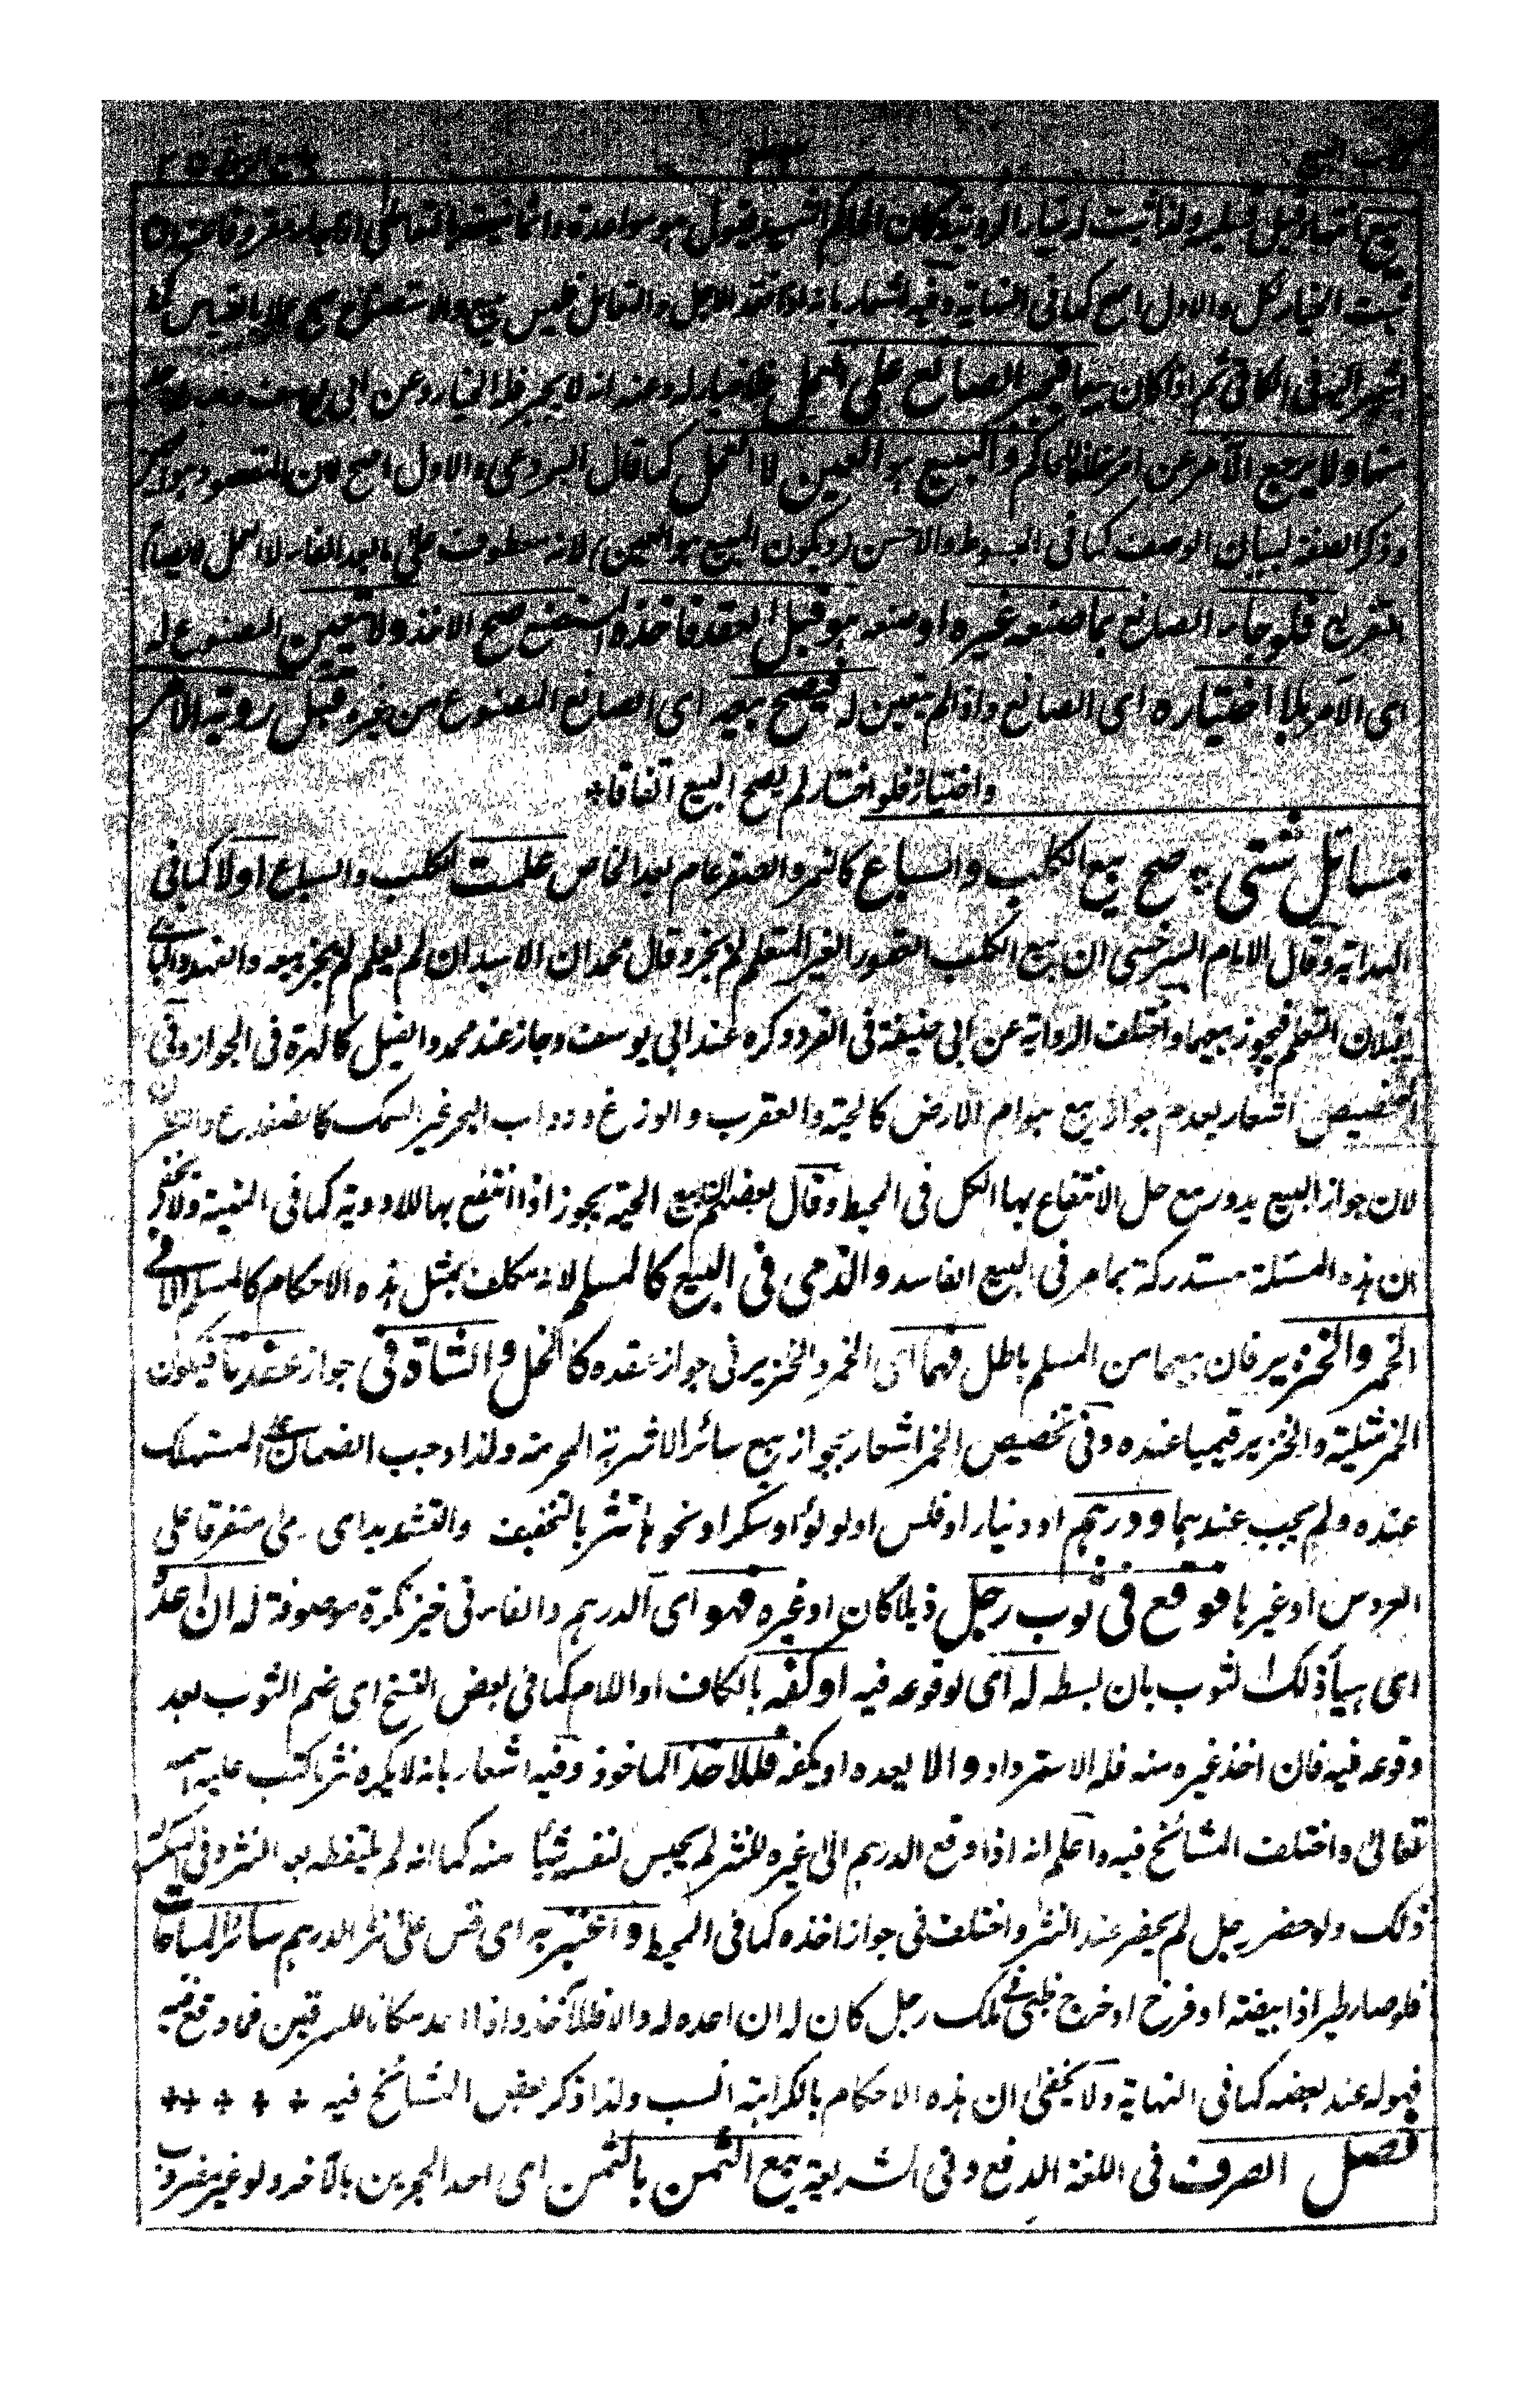 كتاب البيع
بيع انتهاء قبل التسليم ولذا ثبت له خيار الرؤية وكان الحاكم الشهيد يقول هو مواعدة وانما ينعقد بالتعاطي
ثبت الخيار لكل والاول اصح كما في النهاية وفيه اشعار بانه اذا فقد الاجل والتعامل فليس ببيع
في الكافي ثم اذا كان بيعا فيجبر الصانع على العمل فلا خيار له وعنه انه لا يجبر فله الخيار وعن ابي يوسف
منهما ولا يرجع الآمر عن امره والمبيع هو العين لا العمل كما قال البردعي والاول اصح لان المقصود هو
وذكر الصنعة لبيان الوصف كما في المبسوط والاحسن (ويكون المبيع هو العين) لانه معطوف على ما بعد الفاء لا
فلو جاء الصانع بما صنعه غيره او صنعه هو قبل العقد فاخذه المستصنع صح الاخذ ولا يتعين المصنوع له
اى الآمر بلا اختياره اى الصانع واذا لم يتعين له فيصح بيعه اى الصانع المصنوع من غيره قبل روية الآمر
واختياره فلو اختار لم يصح البيع اتفاقا*
مسائل شتى * صح بيع الكلب والسباع كالنمر والصقر عام بعد الخاص علمت الكلب والسباع اولا كما في
الهداية وقال الامام السرخسى ان بيع الكلب العقور الغير المتعلم لم يجز وقال محمد ان الاسد ان لم يعلم لم يجز بيعه والفهد والبازى
يقبلان التعلم فيجوز بيعهما واختلف الرواية عن ابي حنيفة في القرد وكره عند ابي يوسف وجاز عند محمد والفيل كالهرة في الجواز وفي
التخصيص اشعار بعدم جواز بيع هوام الارض كالحية والعقرب والوزغ ودواب البحر غير السمك كالضفدع والسرطان
لان جواز البيع يدور مع حل الانتفاع بها الكل في المحيط وقال بعضهم ان بيع الحية يجوز اذا انتفع بها للادوية كما في المنية ولا يخفى
ان هذه المسئلة مستدركة بما مر في البيع الفاسد والذمي في البيع كالمسلم لانه مكلف بمثل هذه الاحكام كالمسلم الا في
الخمر والخنزير فان بيعهما من المسلم باطل فهما اى الخمر والخنزير في جواز عقده كالخل والشاة في جواز عقدنا فيكون
الخمر مثلية والخنزير قيميا عنده وفي تخصيص الخمر اشعار بجواز بيع سائر الاشربة المحرمة ولذا وجب الضمان على المستهلك
عنده ولم يجب عندهما ودرهم او دينار او فلس او لولؤ او سكر او نحوها نثر بالتخفيف والتشديد اى رمى متفرقا على
العروس او غيرها فوقع في ثوب رجل ذيلا كان او غيره فهو اى الدرهم والفاء في خبر نكرة موصوفة له ان اعده
اى هيأ ذلك الثوب بان بسطه له اى لوقوعه فيه او كفه بالكاف او اللام كما في بعض النسخ اى ضم الثوب بعد
وقوعه فيه فان اخذ غيره منه فله الاسترداد والا يعده او يكفه فللآخذ الماخوذ وفيه اشعار بانه لا يكره نثر ما كتب عليه اسمه
تعالى واختلف المشائخ فيه واعلم انه اذا دفع الدرهم الى غيره للنثر لم يحبس لنفسه شيئا منه كما انه لم يلتقطه بعد النثر وفي السكر له
ذلك ولو حضر رجل لم يحضر عند النثر واختلف في جواز اخذه كما في المحيط واعتبر به اى قس على نثر الدرهم سائر المباحات
فلو صار طير اذا بيضة او فرخ او خرج ظبى في ملك رجل كان له ان اعده له والا فللآخذ واذا اعد مكانا للسرقين فما وقع فيه
فهو له عند بعضه كما في النهاية ولا يخفى ان هذه الاحكام بالكراهية انسب ولذا ذكر بعض المشائخ فيه * * * **
فصل الصرف في اللغة الدفع وفي الشريعة بيع الثمن بالثمن اى احد الحجرين بالآخر ولو غير مضروب